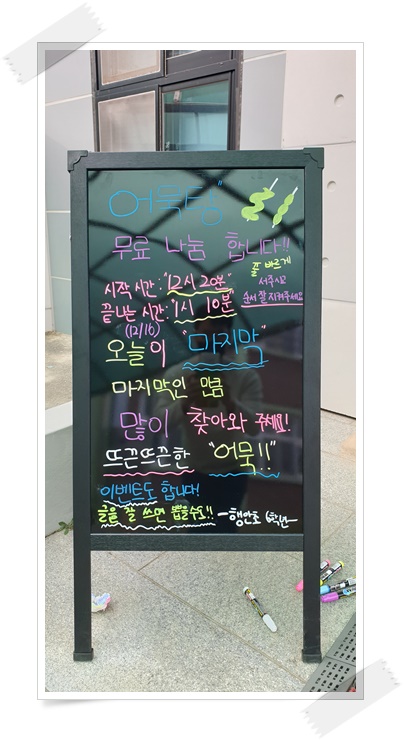 어묵탕"
무료 나눔 합니다!!
줄 바르게
서주시고
순서 잘 지켜주세요
시작 시간 : "12시 20분"
끝나는 시간 : "1시 10분"
(12/16)
오늘이 "마지막"
마지막인 만큼
많이 찾아와 주세요!
뜨끈뜨끈한 "어묵!!"
이벤트도 합니다!
글을 잘 쓰면 뽑을수도!! -행안초 6학년-